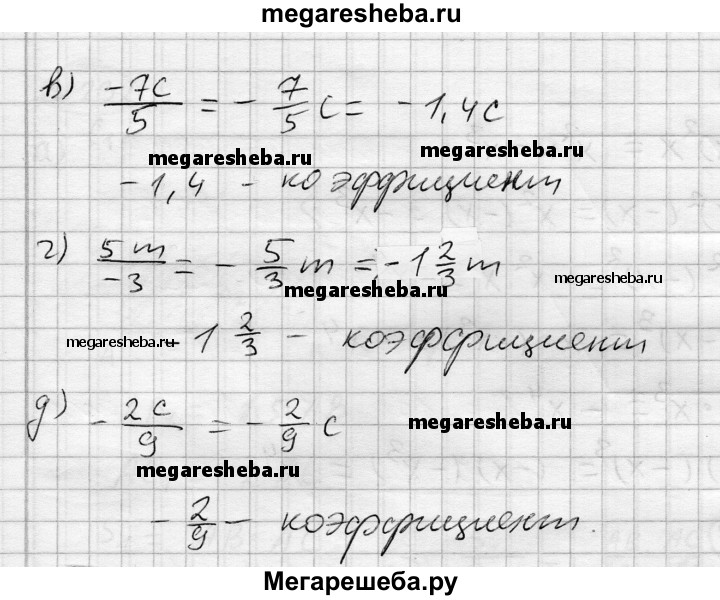 megaresheba.ru
в) -7c/5 = - 7/5 c = -1,4c
megaresheba.ru megaresheba.ru
-1,4 - коэффициент
г) 5m/-3 = - 5/3 m = -1 2/3 m
megaresheba.ru megaresheba.ru
megaresheba.ru - 1 2/3 - коэффициент
д) - 2c/9 = - 2/9 c
megaresheba.ru
megaresheba.ru
- 2/9 - коэффициент.
Мегарешеба.ру